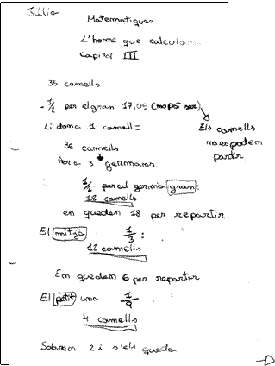 Júlia
Matemàtiques
L'home que calculava
Capítol III
35 camells
- 1/2 per el gran 17,05 (no pot ser)
Els camells
no es poden
partir
Li dona 1 camell =
36 camells
Para 3 germans
1/2 per al germà gran
18 camells
en queden 18 per repartir
El mitjà 1/3 :
12 camells
Em queden 6 per repartir
El petit una 1/9
4 camells
Sobran 2 i s'els queda